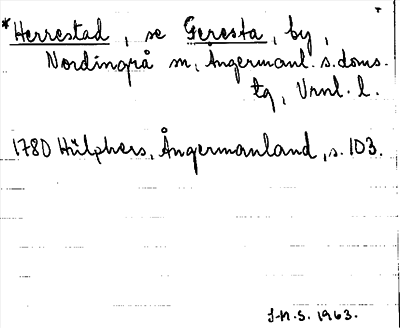 *Herrestad, se Geresta, by,
Nordingrå sn, Ångermanl. s. doms.
tg, Vrnl. l.
1780 Hülphers, Ångermanland, s. 103.
J.N.S. 1963.